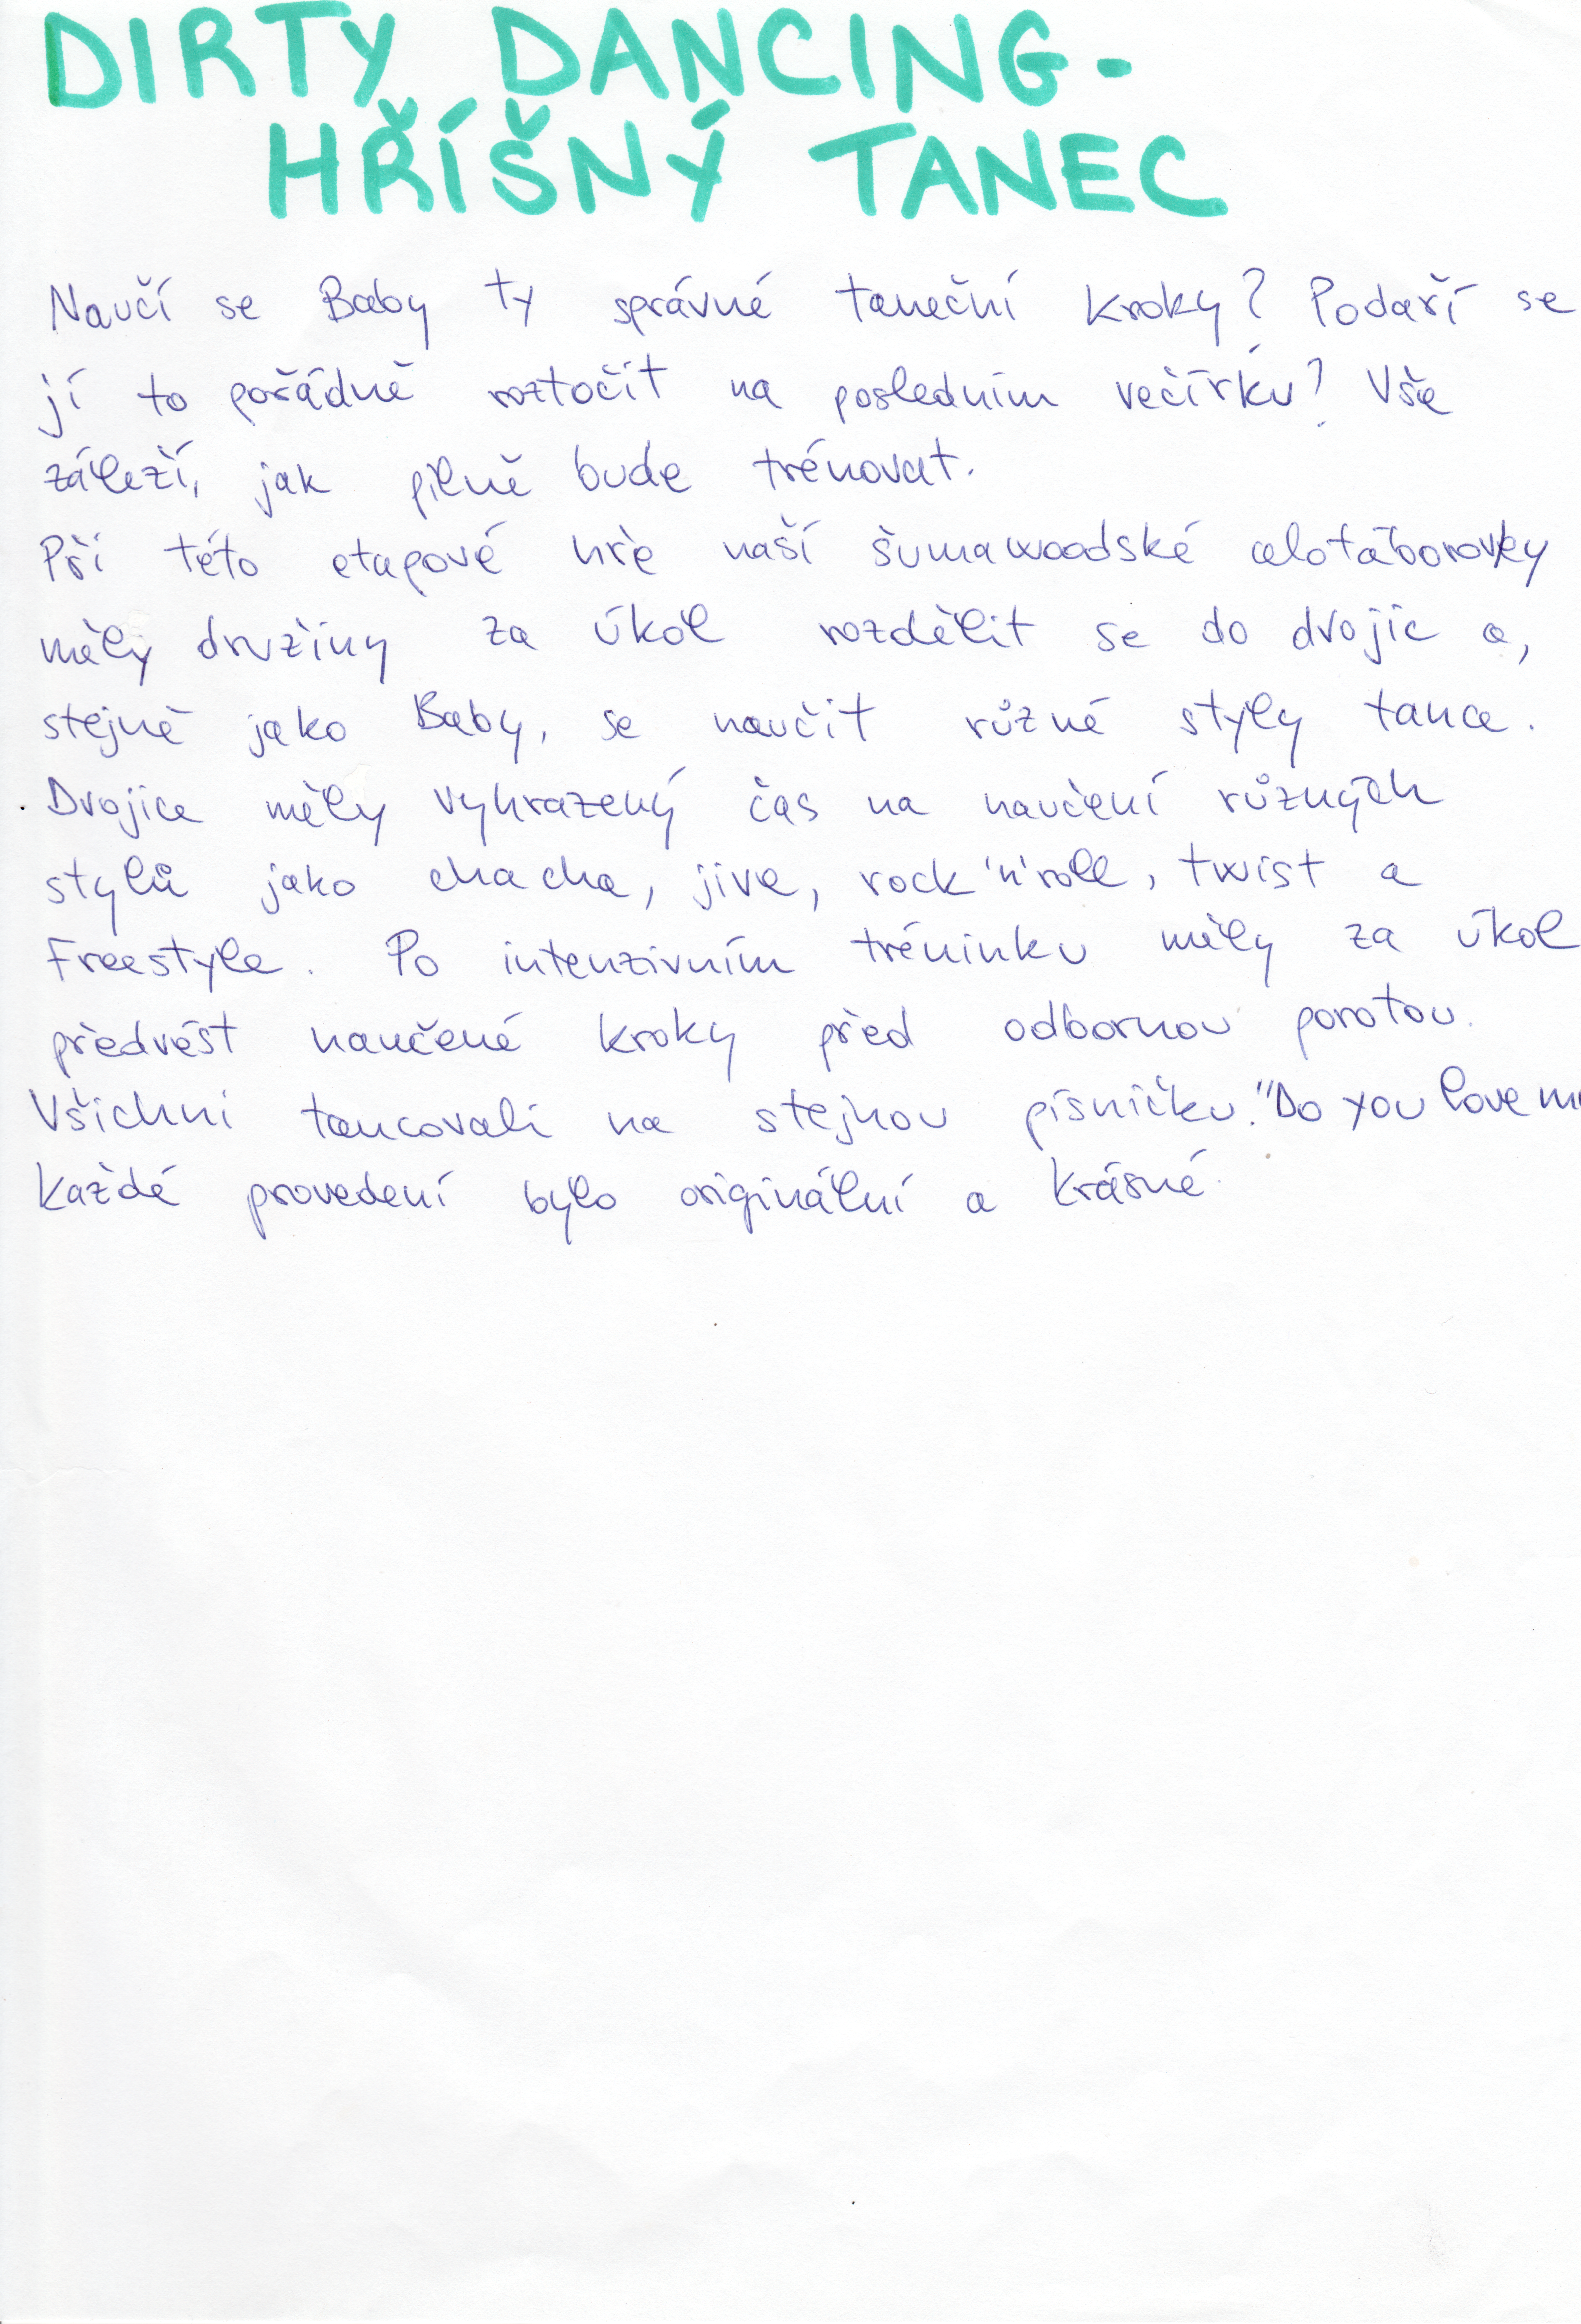 DIRTY DANCING-
HŘÍŠNÝ TANEC
Naučí se Baby ty správné taneční kroky? Podaří se
jí to pořádně roztočit na posledním večírku? Vše
záleží, jak pilně bude trénovat.
Při této etapové hře naší šumawoodské celotáborovky
měly družiny za úkol rozdělit se do dvojic a,
stejně jako Baby, se naučit různé styly tance.
Dvojice měly vyhrazený čas na naučení různých
stylů jako chacha, jive, rock'n'roll, twist a
Freestyle. Po intenzivním tréninku měly za úkol
předvést naučené kroky před odbornou porotou.
Všichni tancovali na stejnou písničku."Do you love
Každé provedení bylo originální a krásné.